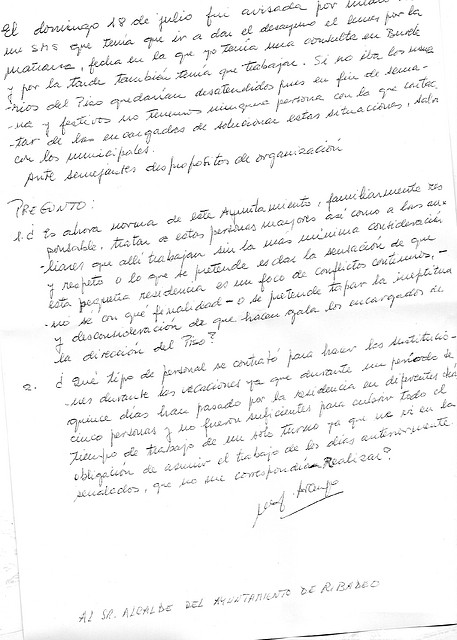 El domingo 18 de julio fui avisada por
un SMS que tenía que ir a dar el desayuno el lunes por la
mañana, fecha en la que yo tenía una consulta en Burela
y por la tarde también tenía que trabajar. Si no iba los usua-
rios del Piso quedarían desatendidos pues en fin de sema-
na y festivos no tenemos ninguna persona con la que contac-
tar de las encargadas de solucionar estas situaciones, salvo
con los municipales.
Ante semejantes despropósitos de organización
PREGUNTO:
1. ¿ Es ahora norma de este Ayuntamiento, familiarmente res
ponsable, tratar a estas personas mayores así como a las au-
xiliares que allí trabajan sin la más mínima consideración
y respeto o lo que se pretende es dar la sensación de que
esta pequeña residencia es un foco de conflictos continuos, -
no sé con qué finalidad - o se pretende tapar la ineptitud
y desconsideración de que hacen gala los encargados de
la dirección del Piso?
2. ¿ Qué tipo de personal se contrató para hacer las sustitucio-
nes durante las vacaciones ya que durante un período de
quince días han pasado por la residencia en diferentes
cinco personas y no fueron suficientes para cubrir todo el
tiempo de trabajo de un solo turno ya que me vi en la
obligación de asumir el trabajo de los días anteriormente
señalados, que no me correspondía Realizar?
AL SR. ALCALDE DEL AYUNTAMIENTO DE RIBADEO